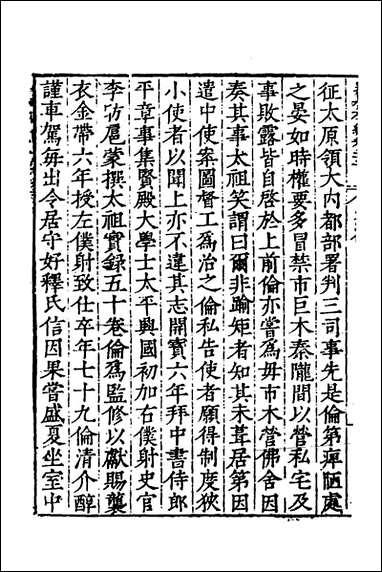 征太原領大內都部署判三司事先是倫第庳陋處
之晏如時權要多冒禁市巨木秦隴間以營私宅及
事敗露皆自啓於上前倫亦嘗爲母市木營佛舍因
奏其事太祖笑謂曰爾非踰矩者知其未葺居第因
遣中使案圖督工爲治之倫私告使者願得制度狹
小使者以聞上亦不違其志開寶六年拜中書侍郎
平章事集賢殿大學士太平興國初加右僕射史官
李昉扈蒙撰太祖實録五十卷倫爲監修以獻賜襲
衣金帶六年授左僕射致仕卒年七十九倫清介醇
謹車駕每出令居守好釋氏信因果嘗盛夏坐室中